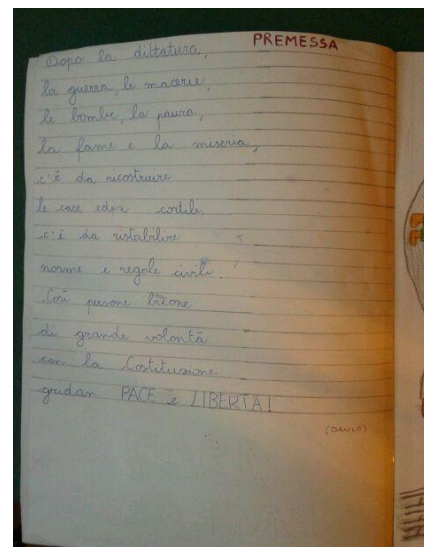 PREMESSA
Dopo la dittatura,
la guerra, le macerie,
le bombe, la paura,
la fame e la miseria,
c'è da ricostruire
le case ed i cortili
c'è da ristabilire
norme e regole civili.
Così persone buone
di grande volontà
con la Costituzione
gridan PACE e LIBERTÀ!
(DANILO)